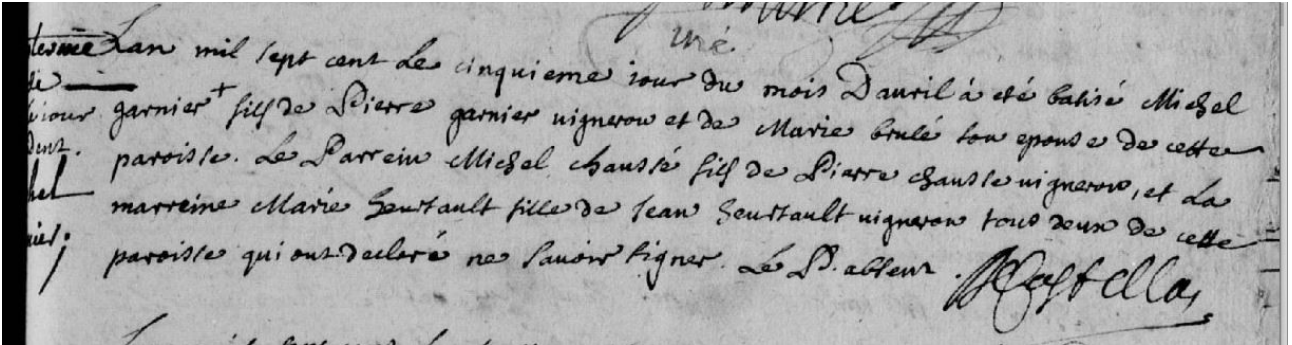 uré
Lan mil sept cent Le cinquieme iour du mois Dauril à eté batisé Michel
garnier + fils de Pierre garnier uigneron et de Marie brulé son epouse de cette
paroisse. Le Parrein Michel chaussé fils de Pierre chausse uigneron, et La
marreine Marie heurtault fille de Jean heurtault uigneron tous deux de cette
paroisse qui ont declaré ne sauoir signer. Le P. absent.